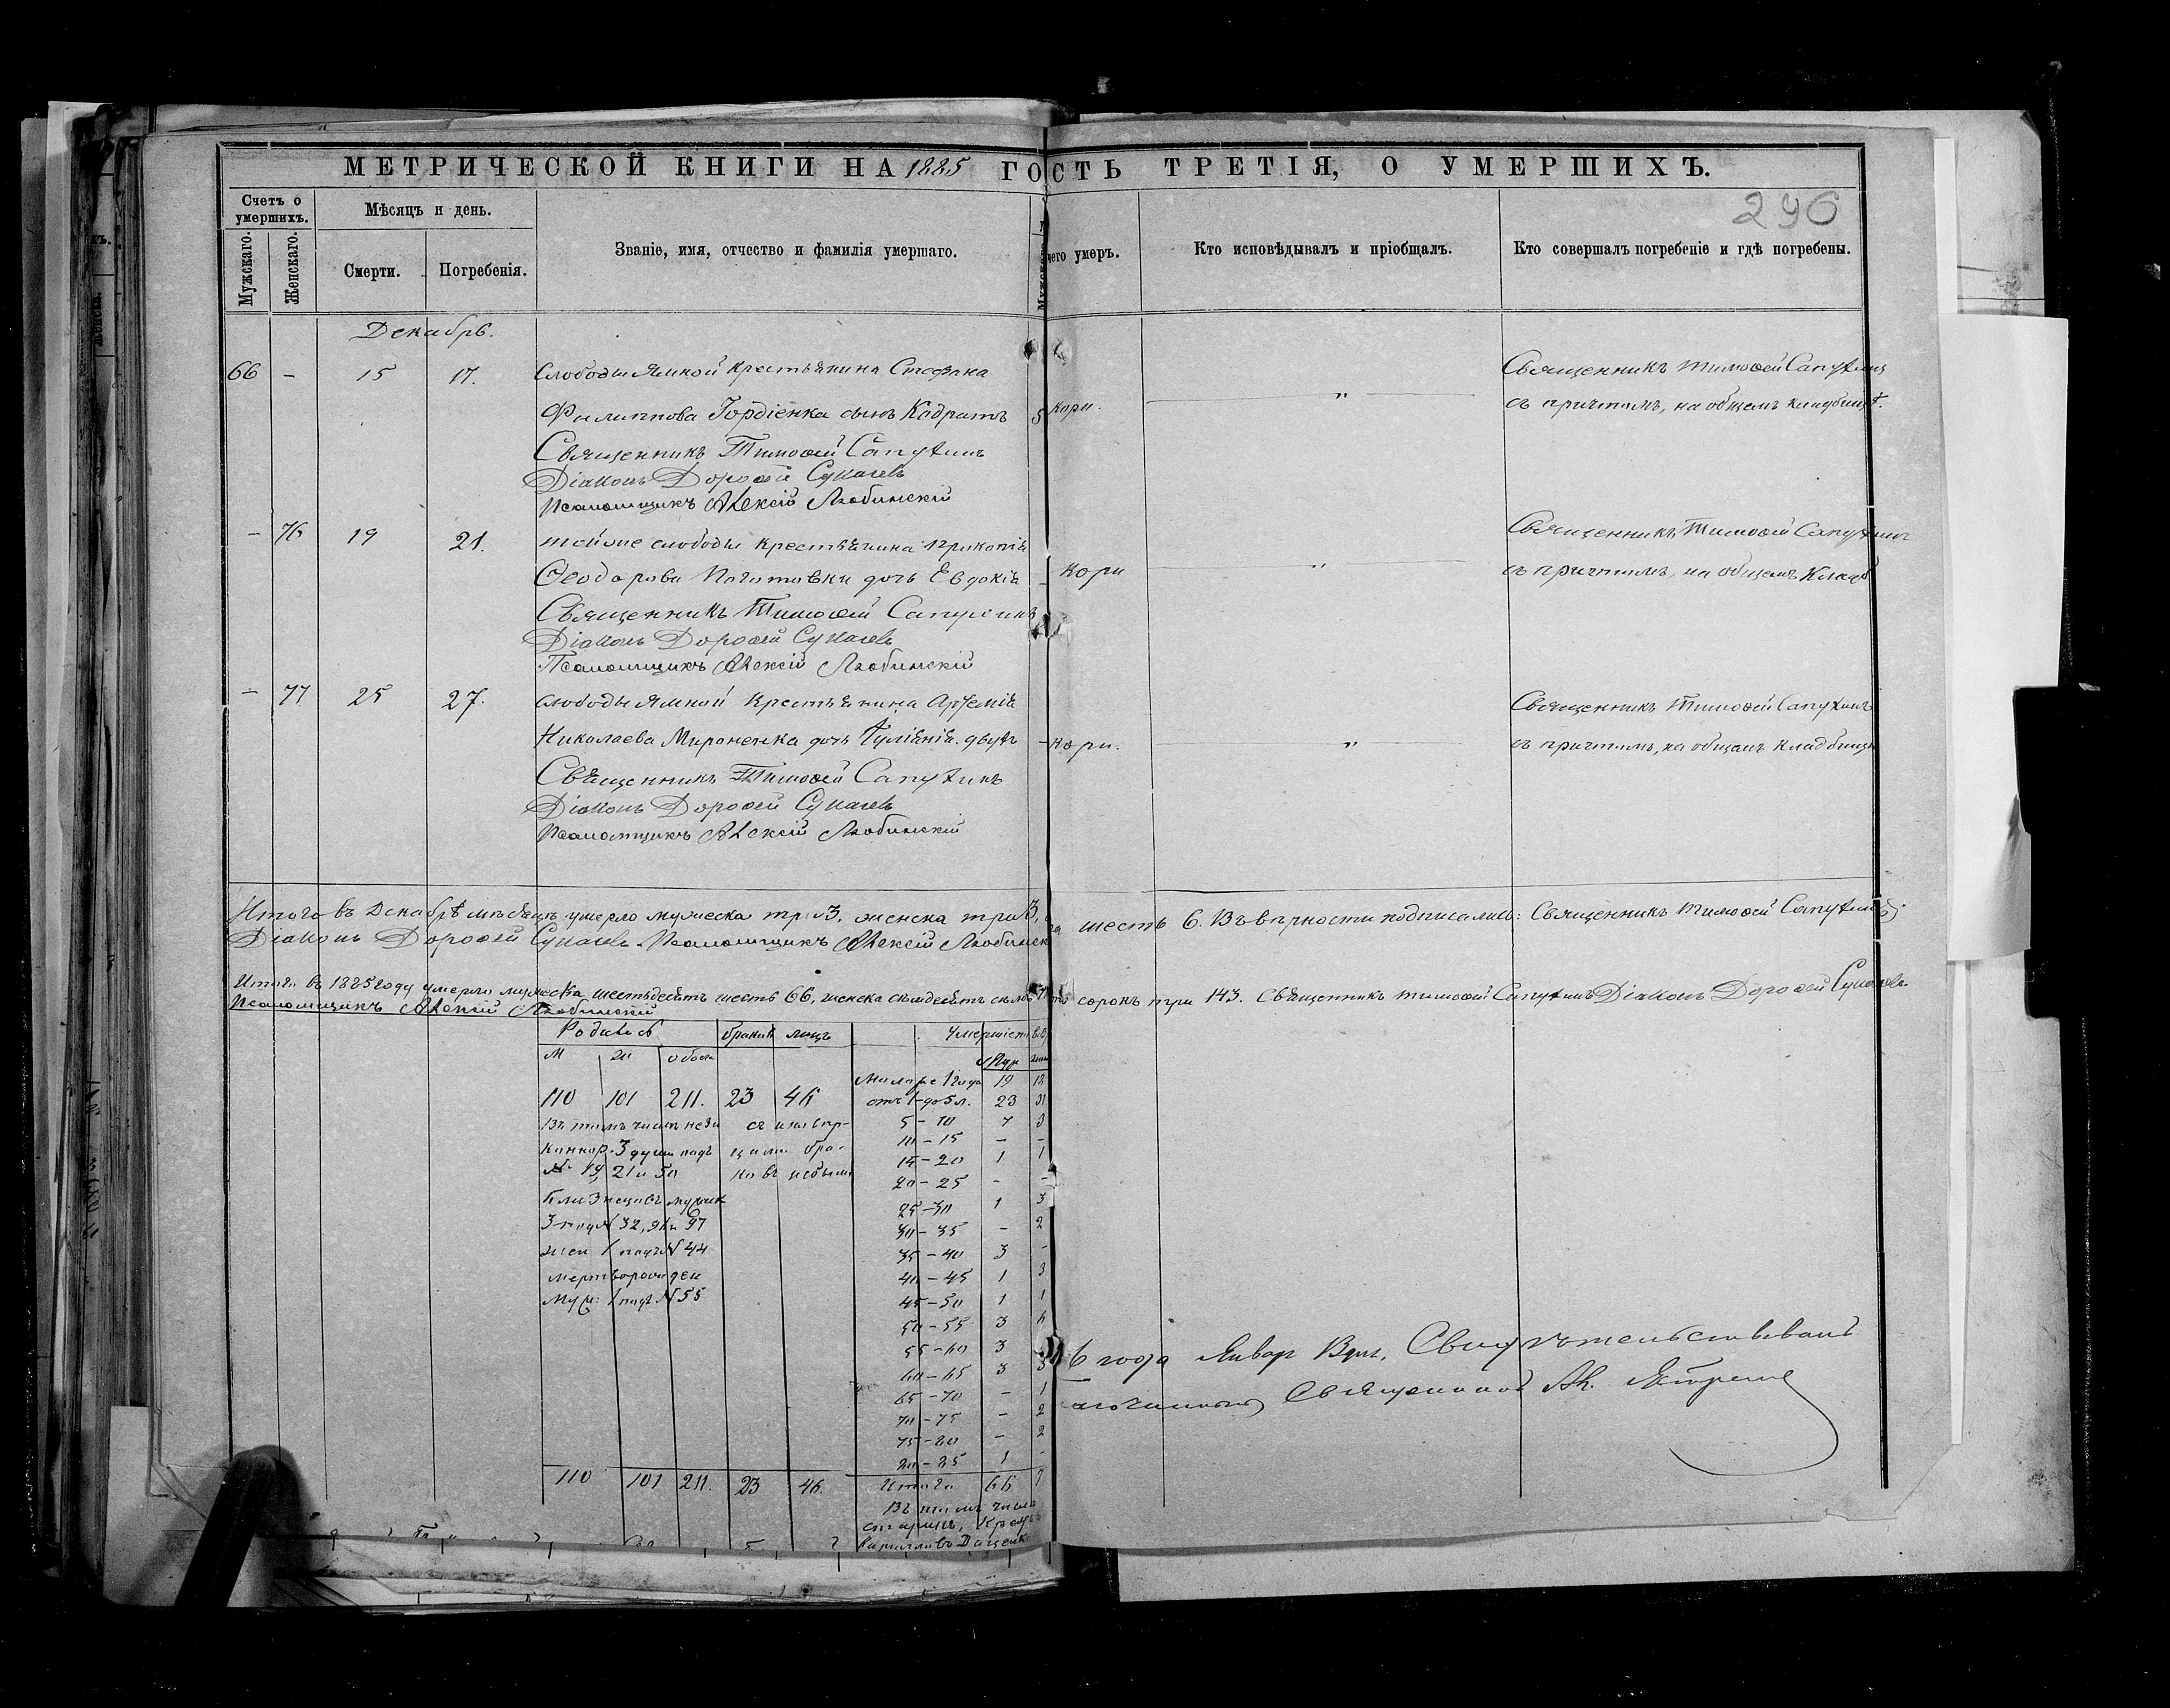 МЕТРИЧЕСКОЙ КНИГИ НА 1885 ГО
СТЬ ТРЕТІЯ, О УМЕРШИХЪ.
296
Счетъ о умершихъ.
Мѣсяцъ и день.
Званіе, имя, отчество и фамилія умершаго.
чего умеръ.
Кто исповѣдывалъ и пріобщалъ.
Кто совершалъ погребеніе и гдѣ погребены.
Мужскаго.
Женскаго.
Смерти.
Погребенія.
Декабрь.
66 - 15 17. Слободы Ямной крестьянина Стефана
Филиппова Гордіенка сынъ Кодратъ 5 кори. " Священникъ Тимофей Сапухинъ
съ причтомъ, на общемъ кладбищѣ.
Священникъ Тимоѳей Сапухинъ
Діаконъ Дороѳей Сукачевъ
Псаломщикъ Алексій Любинскій
- 76 19 21. той же слободы крестьянина Прокопія
Ѳеодорова дочь Евдокія - кори " Священникъ Тимоѳей Сапухинъ
съ причтомъ, на общемъ кладб
Священникъ Тимоѳей Сапухинъ
Діаконъ Дороѳей Сукачевъ
Псаломщикъ Алексій Любинскій
- 77 25 27. слободы Ямной крестьянина Артемія
Николаева Мироненка дочь Іуліанія - кори. " Священникъ Тимоѳей Сапухинъ
съ причтомъ, на общемъ кладбищѣ
Священникъ Тимоѳей Сапухинъ
Діаконъ Дороѳей Сукачевъ
Псаломщикъ Алексій Любинскій
Итого въ Декабрѣ мѣсяцѣ умерло мужеска три 3, женска три 3, шесть 6. Въ вѣрности подписались: Священникъ Тимоѳей Сапухинъ
Діаконъ Дороѳей Сукачевъ Псаломщикъ Алексій Любинск
Итого въ 1885 году умерло мужеска шестьдесятъ шесть 66, женска семьдесятъ семь сорокъ три 143. Священникъ Тимоѳей Сапухинъ Діаконъ Дороѳей Сукачевъ
Псаломщикъ Алексій Любинскій
Родилось браковъ лицъ Умершіе
М ж обоего
110 101 211. 23 46 отъ 1 до 5 л. 23 31
19 18
5-10 7 3
10-15 - -
15-20 1 1
20-25 - -
25-30 1 3
30-35 - 2
35-40 3 -
40-45 1 3
45-50 1 1
50-55 3 6
55-60 3
60-65 3 3
65-70 - 1
70-75 - 2
75-80 - 2
80-85 1 -
Въ томъ числѣ
3 подъ
№ 19, 21 и 50
Близнецовъ
жен 1 подъ № 44
мертворожден
муж: 1 подъ № 55
110 101 211. 23 46. Итого 66 7
Въ томъ числѣ
6 года Январ Свидѣтельствовалъ
Священникъ